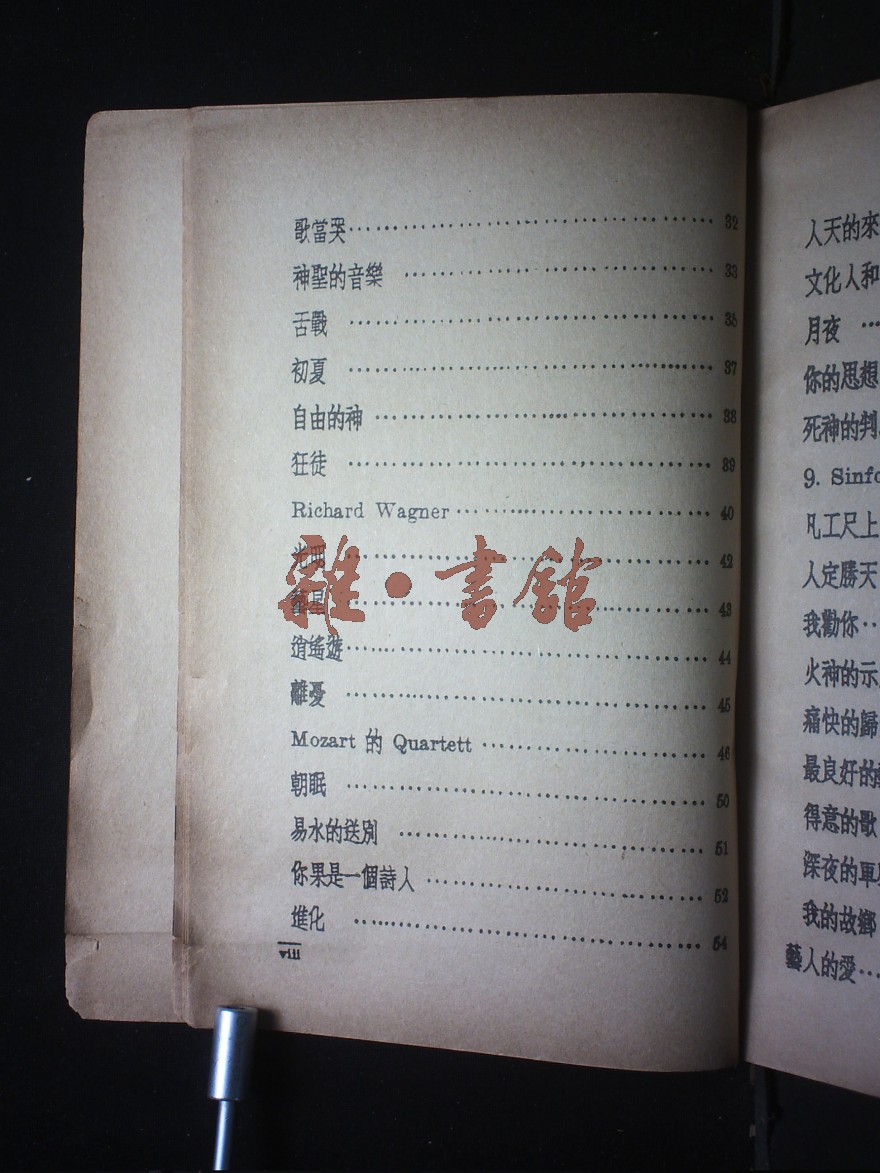 歌當哭 32
神聖的音樂 33
舌戰 35
初夏 37
自由的神 38
狂徒 39
Richard Wagner 40
光明 42
星 43
逍遙遊 44
離憂 45
Mozart 的 Quartett 46
朝眠 50
易水的送別 51
你果是一個詩人 52
進化 54
VIII
雜•書館
人天的來
文化人和
月夜
你的思想
死神的判
9. Sinfo
凡工尺上
人定勝天
我勸你
火神的示
痛快的歸
最良好的
得意的歌
深夜的軍
我的故鄉
藝人的愛